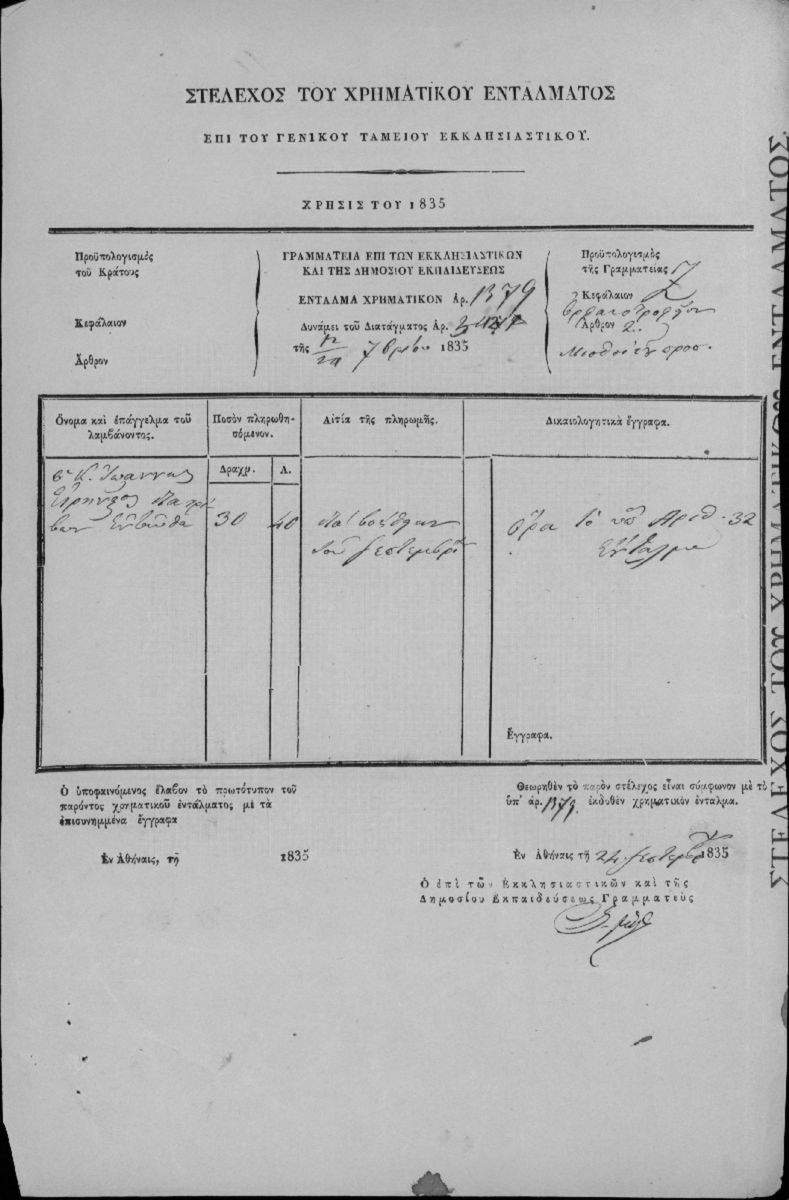 ΣΤΕΛΕΧΟΣ ΤΟΥ ΧΡΗΜΑΤΙΚΟΥ ΕΝΤΑΛΜΑΤΟΣ
ΕΠΙ ΤΟΥ ΓΕΝΙΚΟΥ ΤΑΜΕΙΟΥ ΕΚΚΛΗΣΙΑΣΤΙΚΟΥ.
ΧΡΗΣΙΣ ΤΟΥ 1835
Προϋπολογισμὸς
τοῦ Κράτους
Κεφάλαιον
Ἄρθρον
ΓΡΑΜΜΑΤΕΙΑ ΕΠΙ ΤΩΝ ΕΚΚΛΗΣΙΑΣΤΙΚΩΝ
ΚΑΙ ΤΗΣ ΔΗΜΟΣΙΟΥ ΕΚΠΑΙΔΕΥΣΕΩΣ
ΕΝΤΑΛΜΑ ΧΡΗΜΑΤΙΚΟΝ Ἀρ. 1379
Δυνάμει τοῦ Διατάγματος Ἀρ.
τῆς 12/24 7βρίου 1835
Προϋπολογισμὸς
τῆς Γραμματείας
Κεφάλαιον
Ὀρφανοτροφεῖον
Ἄρθρον 2.
Ὄνομα καὶ ἐπάγγελμα τοῦ
λαμβάνοντος.
Ποσὸν πληρωθη-
σόμενον.
Αἰτία τῆς πληρωμῆς.
Δικαιολογητικὰ ἔγγραφα.
Δραχμ.
Λ.
ὁ Κ. Ἰωάννης
30
40
τοῦ Σεπτεμβρίου
ὅρα τὸ ὑπ Ἀριθ. 32
Ἔνταλμα
Ἔγγραφα.
Ὁ ὑποφαινόμενος ἔλαβον τὸ πρωτότυπον τοῦ
παρόντος χρηματικοῦ ἐντάλματος μὲ τὰ
ἐπισυνημμένα ἔγγραφα
Ἐν Ἀθήναις, τῇ 1835
Θεωρηθὲν τὸ παρὸν στέλεχος εἶναι σύμφωνον μὲ τὸ
ὑπ' ἀρ. 1379 ἐκδοθὲν χρηματικὸν ἔνταλμα.
Ἐν Ἀθήναις τῇ 24 Σεπτεμβρ 1835
Ὁ ἐπὶ τῶν Ἐκκλησιαστικῶν καὶ τῆς
Δημοσίου Ἐκπαιδεύσεως Γραμματεὺς
ΣΤΕΛΕΧΟΣ ΤΟΥ ΧΡΗΜΑΤΙΚΟΥ ΕΝΤΑΛΜΑΤΟΣ.